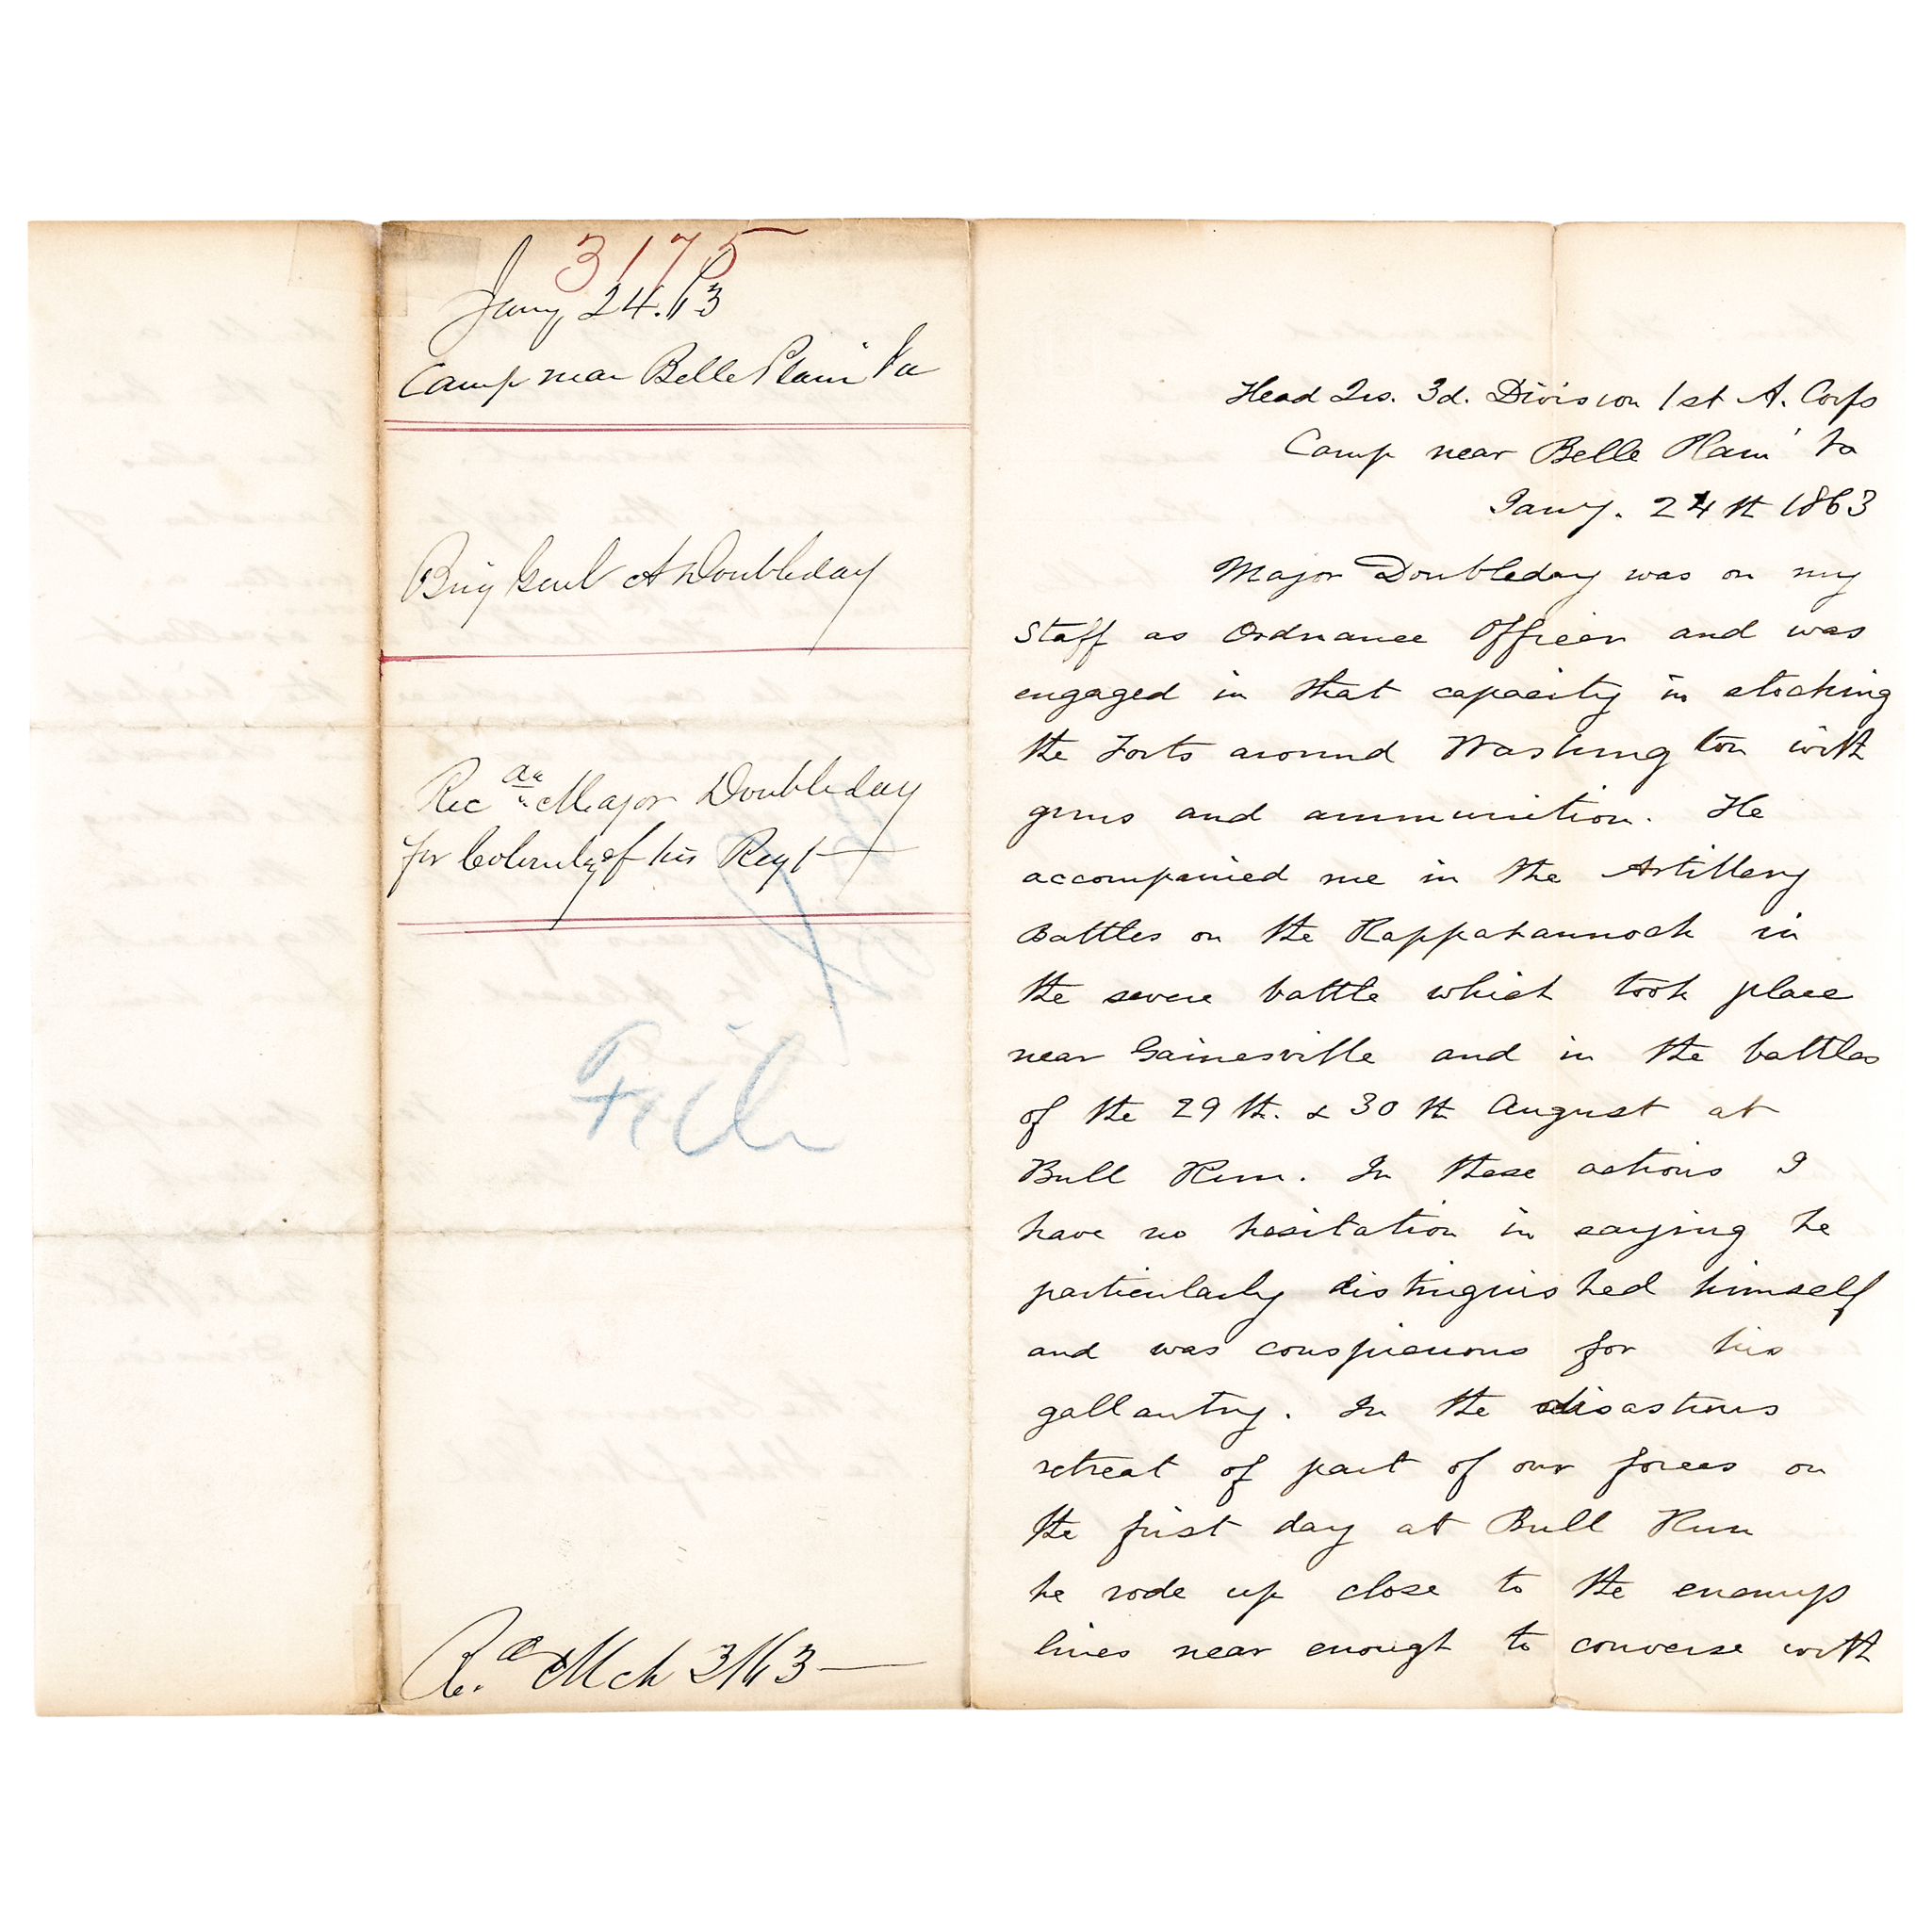 3175
Jany 24. 63
Camp near Belle Plain Va
Brig Genl A Doubleday
Rec Major Doubleday
for Colonelcy of his Regt
File
Mch 3/63
Head Qrs. 3d. Division 1st A. Corps
Camp near Belle Plain Va
Jany. 24th 1863
Major Doubleday was on my
Staff as Ordnance Officer and was
engaged in that capacity in stocking
the Forts around Washington with
guns and ammunition. He
accompanied me in the Artillery
Battles on the Rappahannock in
the severe battle which took place
near Gainesville and in the battles
of the 29th. & 30th August at
Bull Run. In these actions I
have no hesitation in saying he
particularly distinguished himself
and was conspicuous for his
gallantry. In the disastrous
retreat of part of our forces on
the first day at Bull Run
he rode up close to the enemys
lines near enough to converse with